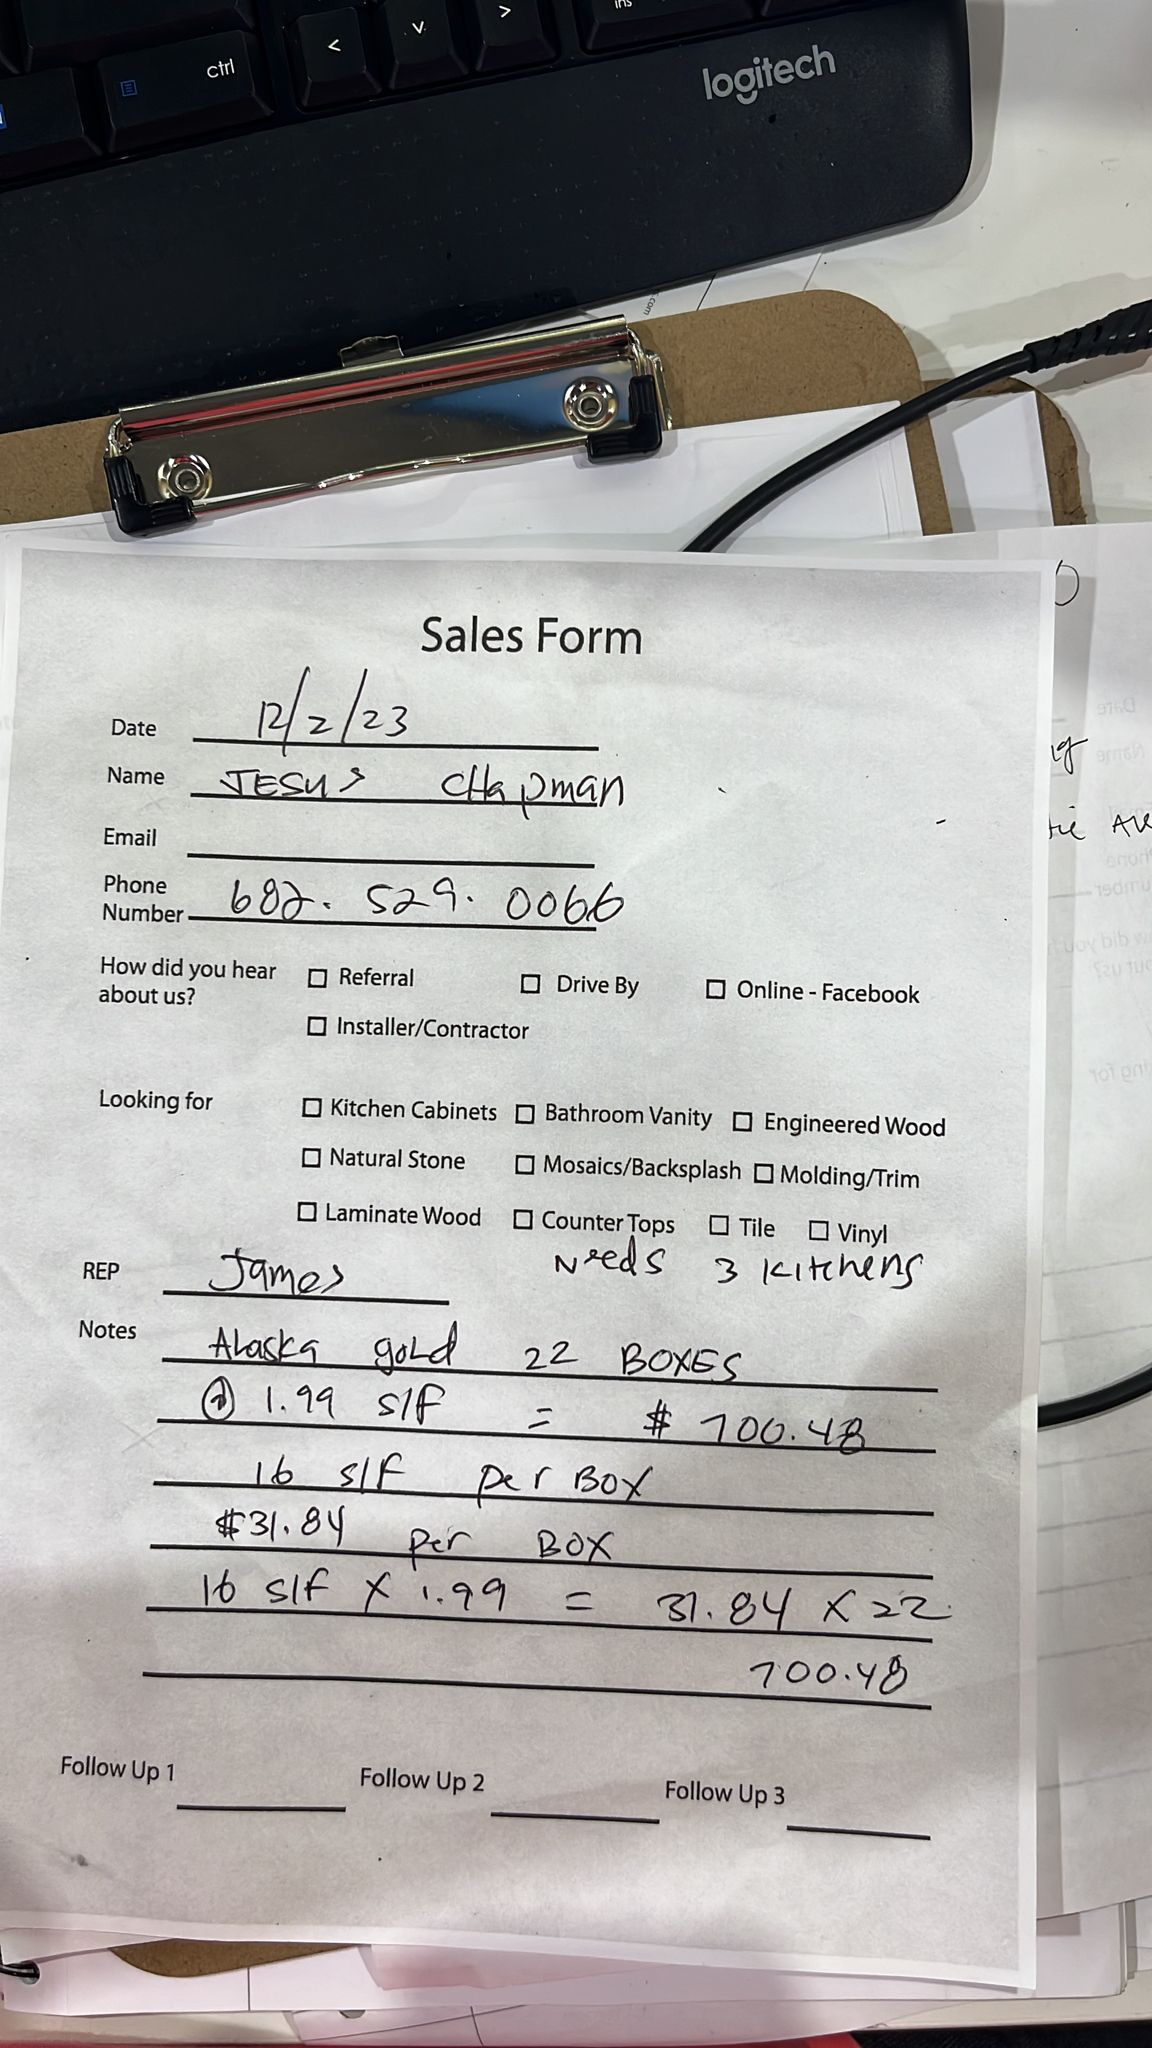 ctrl
<
v
>
Ins
logitech
Sales Form
Date 12/2/23
Name JESUS CHapman
Email
Phone
Number 682. 529. 0066
How did you hear
about us?
☐ Referral ☐ Drive By ☐ Online - Facebook
☐ Installer/Contractor
Looking for ☐ Kitchen Cabinets ☐ Bathroom Vanity ☐ Engineered Wood
☐ Natural Stone ☐ Mosaics/Backsplash ☐ Molding/Trim
☐ Laminate Wood ☐ Counter Tops ☐ Tile ☐ Vinyl
Needs 3 Kitchens
REP James
Notes Alaska gold 22 BOXES
@ 1.99 s/f = $ 700.48
16 s/f per BOX
$31.84 per BOX
16 s/f X 1.99 = 31.84 X 22
700.48
Follow Up 1 Follow Up 2 Follow Up 3